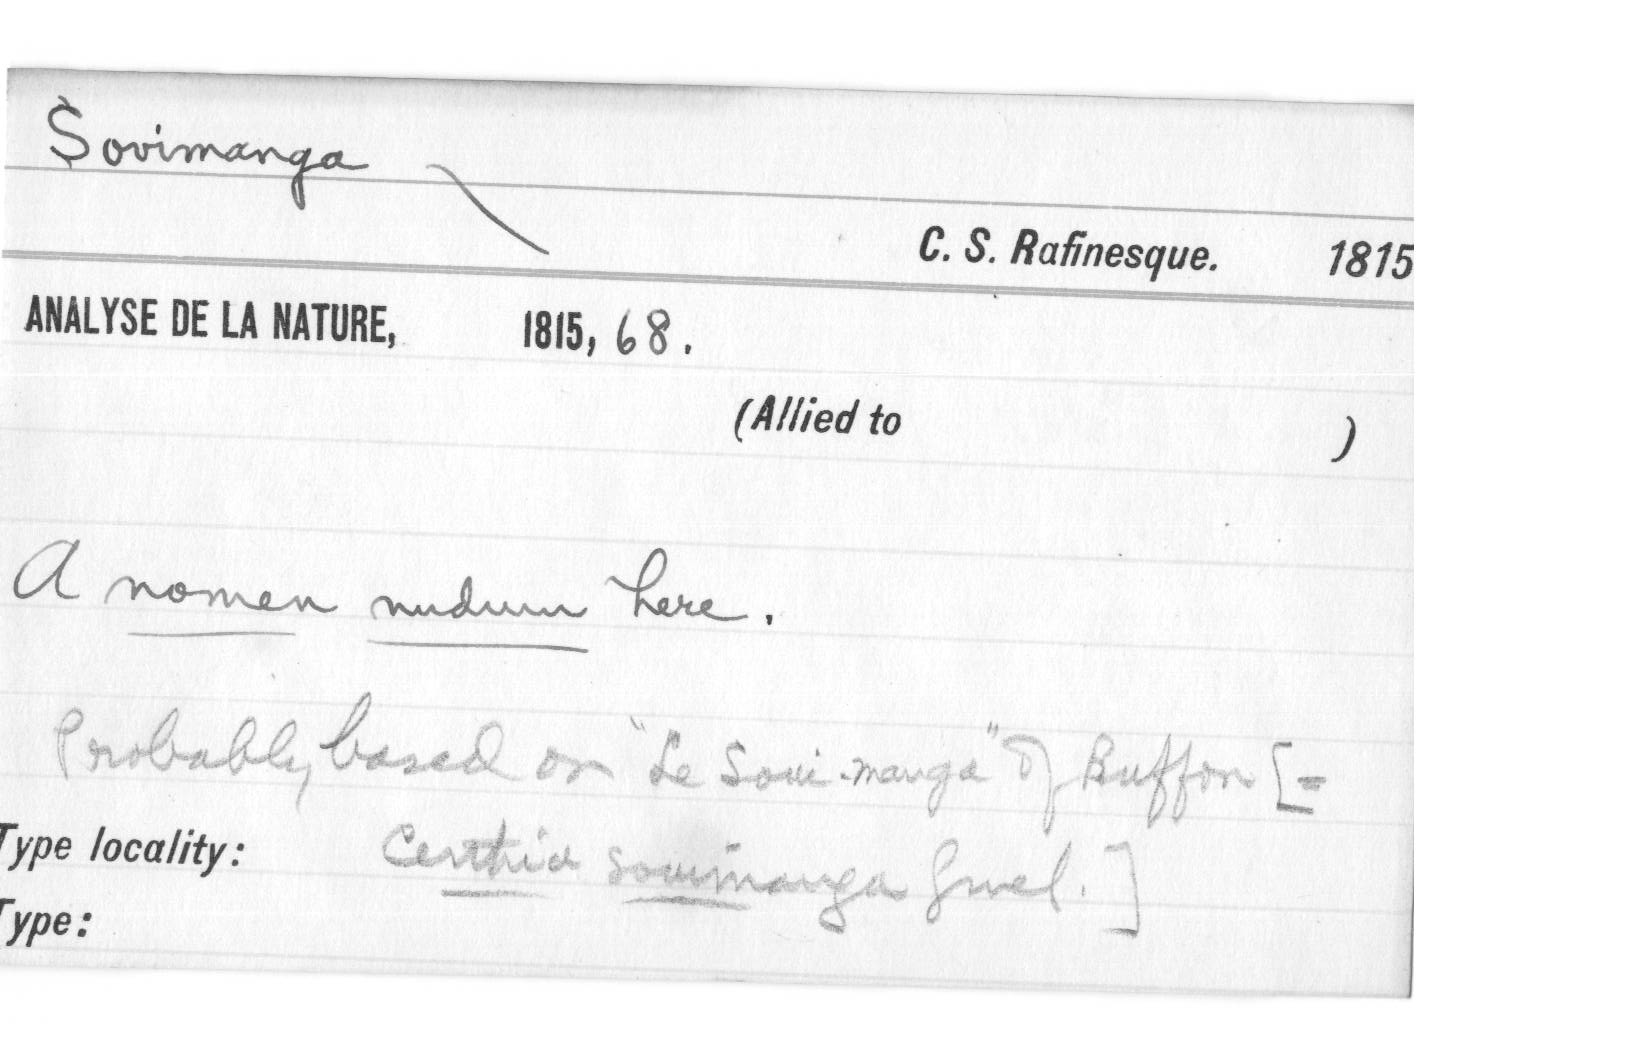 Sovimanga
C. S. Rafinesque. 1815
ANALYSE DE LA NATURE, 1815, 68.
(Allied to )
A nomen nudum here.
Probably based on "Le Soui-manga" of Buffon [=
Type locality: Certhia souimanga Gmel.]
Type: